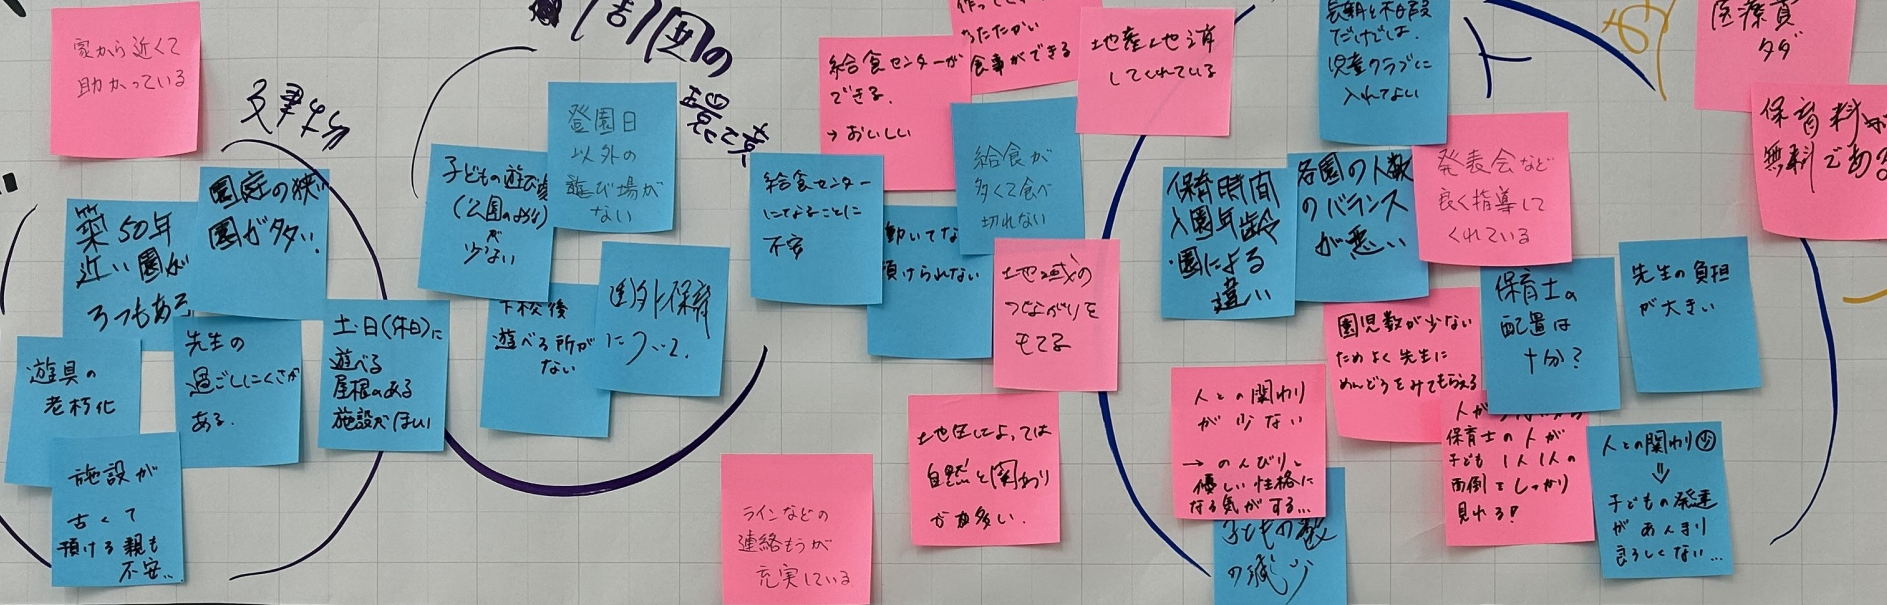 家から近くて
助かっている
築50年
近い園が
3つもある
園庁の狭い
園が多い
遊具の
老朽化
先生の
過ごしにくさが
ある.
施設が
古くて
預ける親も
不安…
土.日(休日)に
遊べる
屋根のある
施設がほしい
の
環境
子どもの遊び場
(公園のような)
が
少ない
登園日
以外の
遊び場が
ない
下校後
遊べる所が
ない
園外保育
について.
給食センターが
できる.
→おいしい
あたたかい
食事ができる
地産地消
してくれている
給食センター
になることに
不安
動いてな
預けられない
給食が
多くて食べ
切れない
地域の
つながりを
もてる
地区によっては
自然と関わり
が多い.
ラインなどの
連絡もうが
充実している
ト
長期と不日設
だけでしょ.
児童クラブに
入れてよい
保育時間
入園年齢
・園による
違い
各園の人数
のバランス
が悪い
発表会など
良く指導して
くれている
園児数が少ない
ためよく先生に
めんどうをみてもらえる
保育士の
配置は
十分?
先生の負担
が大きい
人との関わり
が少ない
→のんびり、
優しい性格に
なる気がする…
子どもの数
の減少
保育士の人が
子ども1人1人の
面倒をしっかり
見れる!
人との関わり少
⇓
子どもの発達
があんまり
よろしくない…
医療費
タダ
保育料が
無料である